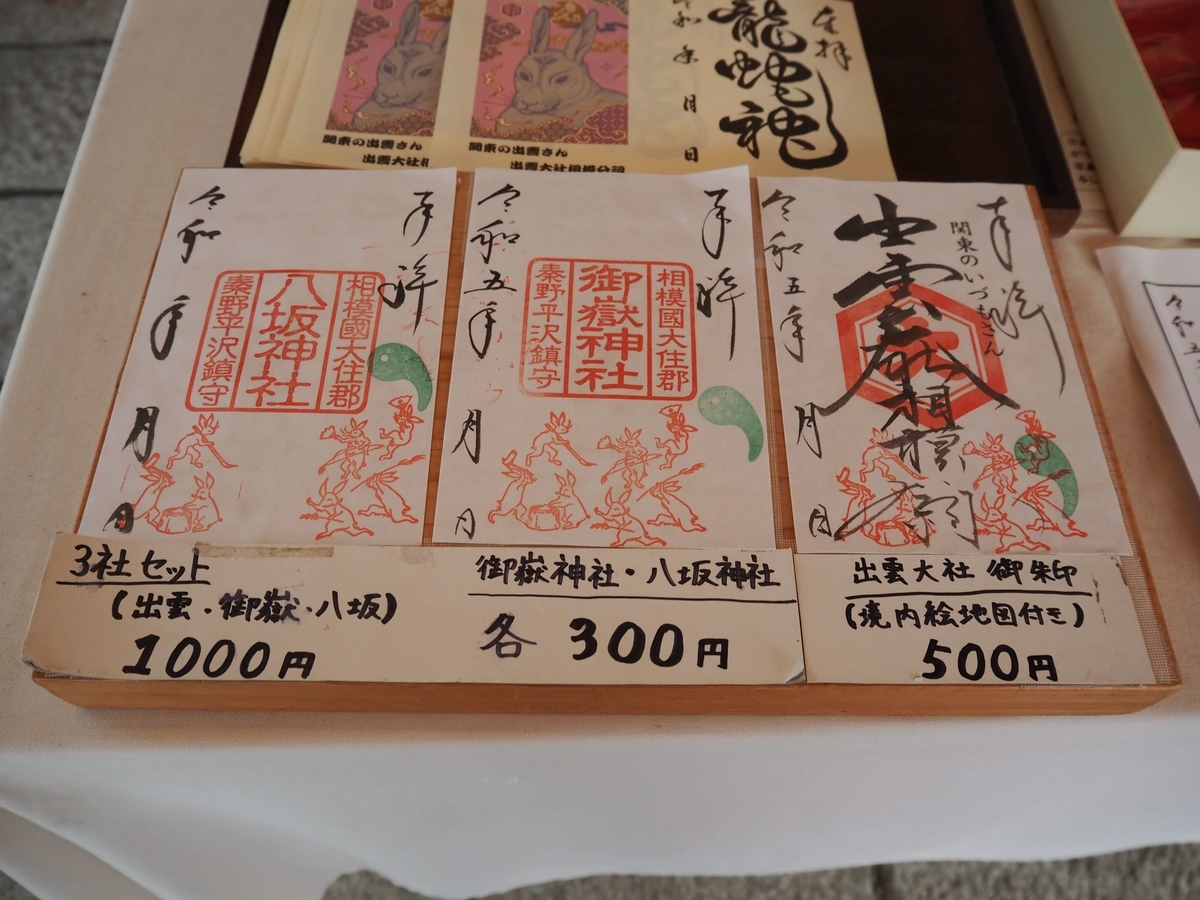 奉拝
龍蛇神
令和 年 月 日
関東の出雲さん
関東の出雲さん
出雲大社相模分祠
奉拝
相模國大住郡
八坂神社
秦野平沢鎮守
令和 年 月 日
奉拝
相模國大住郡
御嶽神社
秦野平沢鎮守
令和五年 月 日
奉拝
関東のいづもさん
出雲大社相模分祠
令和五年 月 日
令和五
3社セット
(出雲・御嶽・八坂)
1000円
御嶽神社・八坂神社
各 300円
出雲大社 御朱印
(境内絵地図付き)
500円